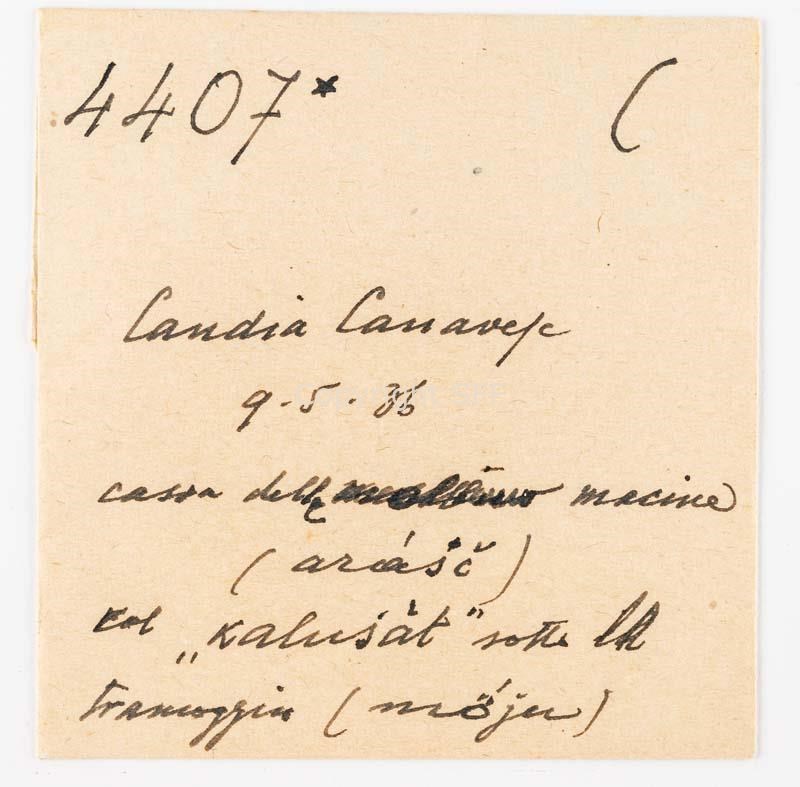 4407* (
Candia Canavese
9.5.36
cassa delle macine
(arašč)
col „kalušát" sotto la
tramoggia (möju)